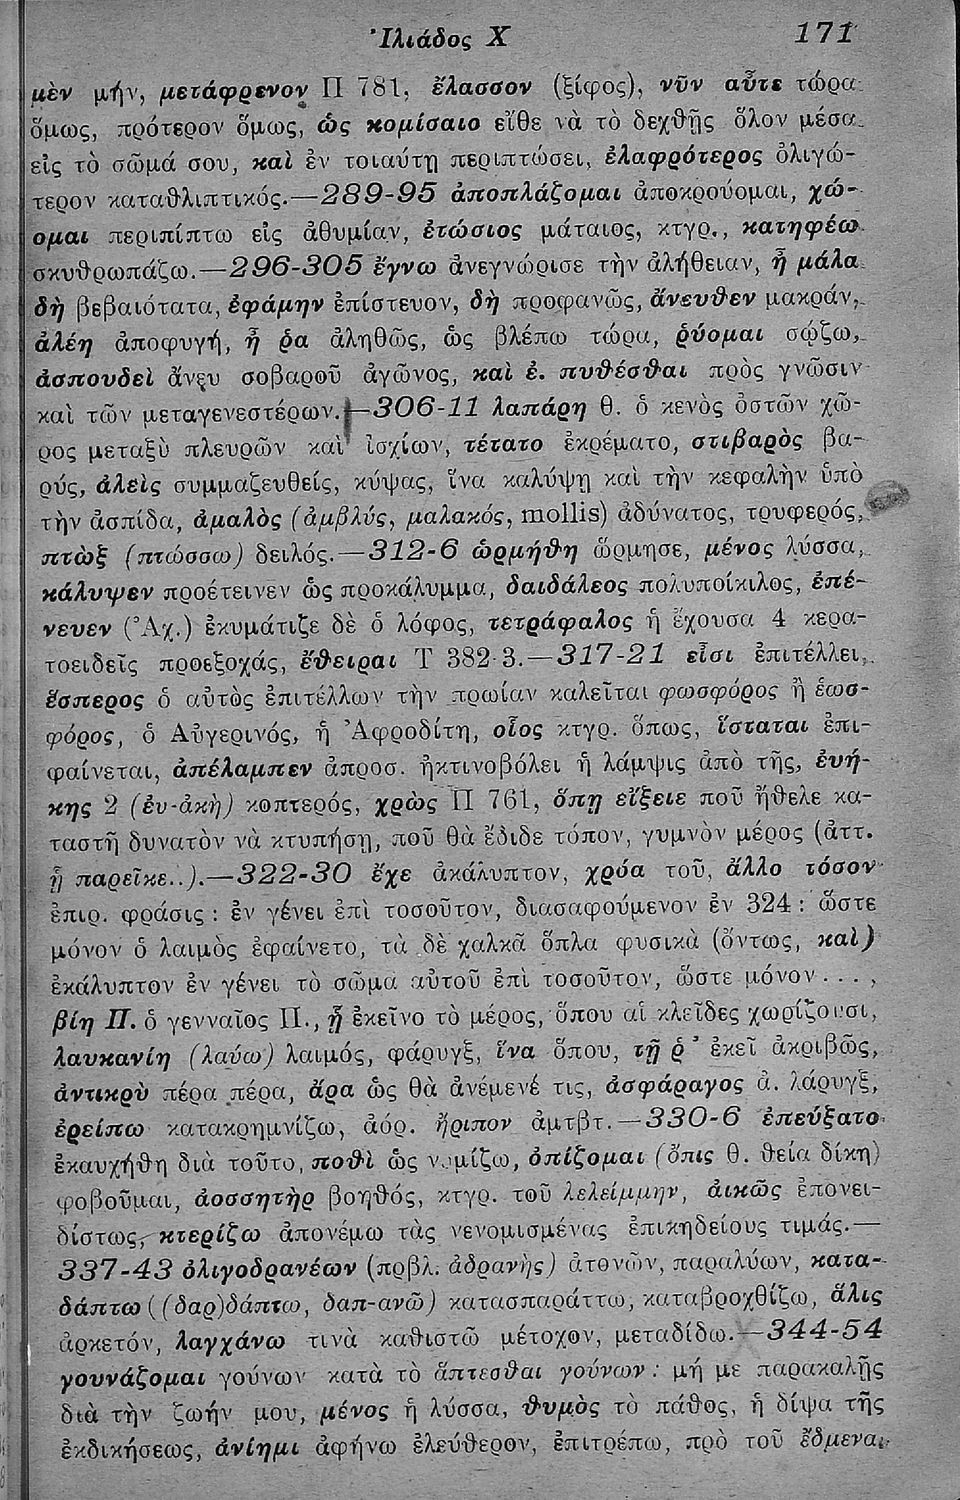 Ἰλιάδος Χ 171
μὲν μήν, μετάφρενον Π 781, ἔλασσον (ξίφος), νῦν αὖτε τώρα
ὅμως, πρότερον ὅμως, ὡς κομίσαιο εἴθε νὰ τὸ δεχθῇς ὅλον μέσα
εἰς τὸ σῶμά σου, καὶ ἐν τοιαύτῃ περιπτώσει, ἐλαφρότερος ὀλιγώ-
τερον καταθλιπτικός.—289-95 ἀποπλάζομαι ἀποκρούομαι, χώ-
ομαι περιπίπτω εἰς ἀθυμίαν, ἐτώσιος μάταιος, κτγρ., κατηφέω
σκυθρωπάζω.—296-305 ἔγνω ἀνεγνώρισε τὴν ἀλήθειαν, ἦ μάλα
δὴ βεβαιότατα, ἐφάμην ἐπίστευον, δὴ προφανῶς, ἄνευθεν μακράν,
ἀλέη ἀποφυγή, ἦ ῥα ἀληθῶς, ὡς βλέπω τώρα, ῥύομαι σῴζω,
ἀσπουδεὶ ἄνευ σοβαροῦ ἀγῶνος, καὶ ἐ. πυθέσθαι πρὸς γνῶσιν
καὶ τῶν μεταγενεστέρων.—306-11 λαπάρη θ. ὁ κενὸς ὀστῶν χῶ-
ρος μεταξὺ πλευρῶν καὶ ἰσχίων, τέτατο ἐκρέματο, στιβαρὸς βα-
ρύς, ἀλεὶς συμμαζευθείς, κύψας, ἵνα καλύψῃ καὶ τὴν κεφαλὴν ὑπὸ
τὴν ἀσπίδα, ἀμαλὸς (ἀμβλύς, μαλακός, mollis) ἀδύνατος, τρυφερός,
πτὼξ (πτώσσω) δειλός.—312-6 ὡρμήθη ὥρμησε, μένος λύσσα,
κάλυψεν προέτεινεν ὡς προκάλυμμα, δαιδάλεος πολυποίκιλος, ἐπέ-
νευεν (Ἀχ.) ἐκυμάτιζε δὲ ὁ λόφος, τετράφαλος ἡ ἔχουσα 4 κερα-
τοειδεῖς προεξοχάς, ἔθειραι Τ 382-3.—317-21 εἶσι ἐπιτέλλει,
ἕσπερος ὁ αὐτὸς ἐπιτέλλων τὴν πρωίαν καλεῖται φωσφόρος ἢ ἑωσ-
φόρος, ὁ Αὐγερινός, ἡ Ἀφροδίτη, οἷος κτγρ. ὅπως, ἵσταται ἐπι-
φαίνεται, ἀπέλαμπεν ἀπροσ. ἠκτινοβόλει ἡ λάμψις ἀπὸ τῆς, ἐυή-
κης 2 (ἐυ-ἀκὴ) κοπτερός, χρὼς Π 761, ὅπῃ εἴξειε ποῦ ἤθελε κα-
ταστῆ δυνατὸν νὰ κτυπήσῃ, ποῦ θὰ ἔδιδε τόπον, γυμνὸν μέρος (ἀττ.
ᾗ παρεῖκε..).—322-30 ἔχε ἀκάλυπτον, χρόα τοῦ, ἄλλο τόσον
ἐπιρ. φράσις : ἐν γένει ἐπὶ τοσοῦτον, διασαφούμενον ἐν 324 : ὥστε
μόνον ὁ λαιμὸς ἐφαίνετο, τὰ δὲ χαλκᾶ ὅπλα φυσικὰ (ὄντως, καὶ)
ἐκάλυπτον ἐν γένει τὸ σῶμα αὐτοῦ ἐπὶ τοσοῦτον, ὥστε μόνον... ,
βίη Π. ὁ γενναῖος Π., ᾗ ἐκεῖνο τὸ μέρος, ὅπου αἱ κλεῖδες χωρίζουσι,
λαυκανίη (λαύω) λαιμός, φάρυγξ, ἵνα ὅπου, τῇ ῥ' ἐκεῖ ἀκριβῶς,
ἀντικρὺ πέρα πέρα, ἄρα ὡς θὰ ἀνέμενέ τις, ἀσφάραγος ἀ. λάρυγξ,
ἐρείπω κατακρημνίζω, ἀόρ. ἤριπον ἀμτβτ.—330-6 ἐπεύξατο
ἐκαυχήθη διὰ τοῦτο, ποθὶ ὡς νομίζω, ὀπίζομαι (ὄπις θ. θεία δίκη)
φοβοῦμαι, ἀοσσητὴρ βοηθός, κτγρ. τοῦ λελείμμην, ἀικῶς ἐπονει-
δίστως, κτερίζω ἀπονέμω τὰς νενομισμένας ἐπικηδείους τιμάς.—
337-43 ὀλιγοδρανέων (πρβλ. ἀδρανὴς) ἀτονῶν, παραλύων, κατα-
δάπτω ((δαρ)δάπτω, δαπ-ανῶ) κατασπαράττω, καταβροχθίζω, ἅλις
ἀρκετόν, λαγχάνω τινὰ καθιστῶ μέτοχον, μεταδίδω.—344-54
γουνάζομαι γούνων κατὰ τὸ ἅπτεσθαι γούνων : μή με παρακαλῇς
διὰ τὴν ζωήν μου, μένος ἡ λύσσα, θυμὸς τὸ πάθος, ἡ δίψα τῆς
ἐκδικήσεως, ἀνίημι ἀφήνω ἐλεύθερον, ἐπιτρέπω, πρὸ τοῦ ἔδμεναι